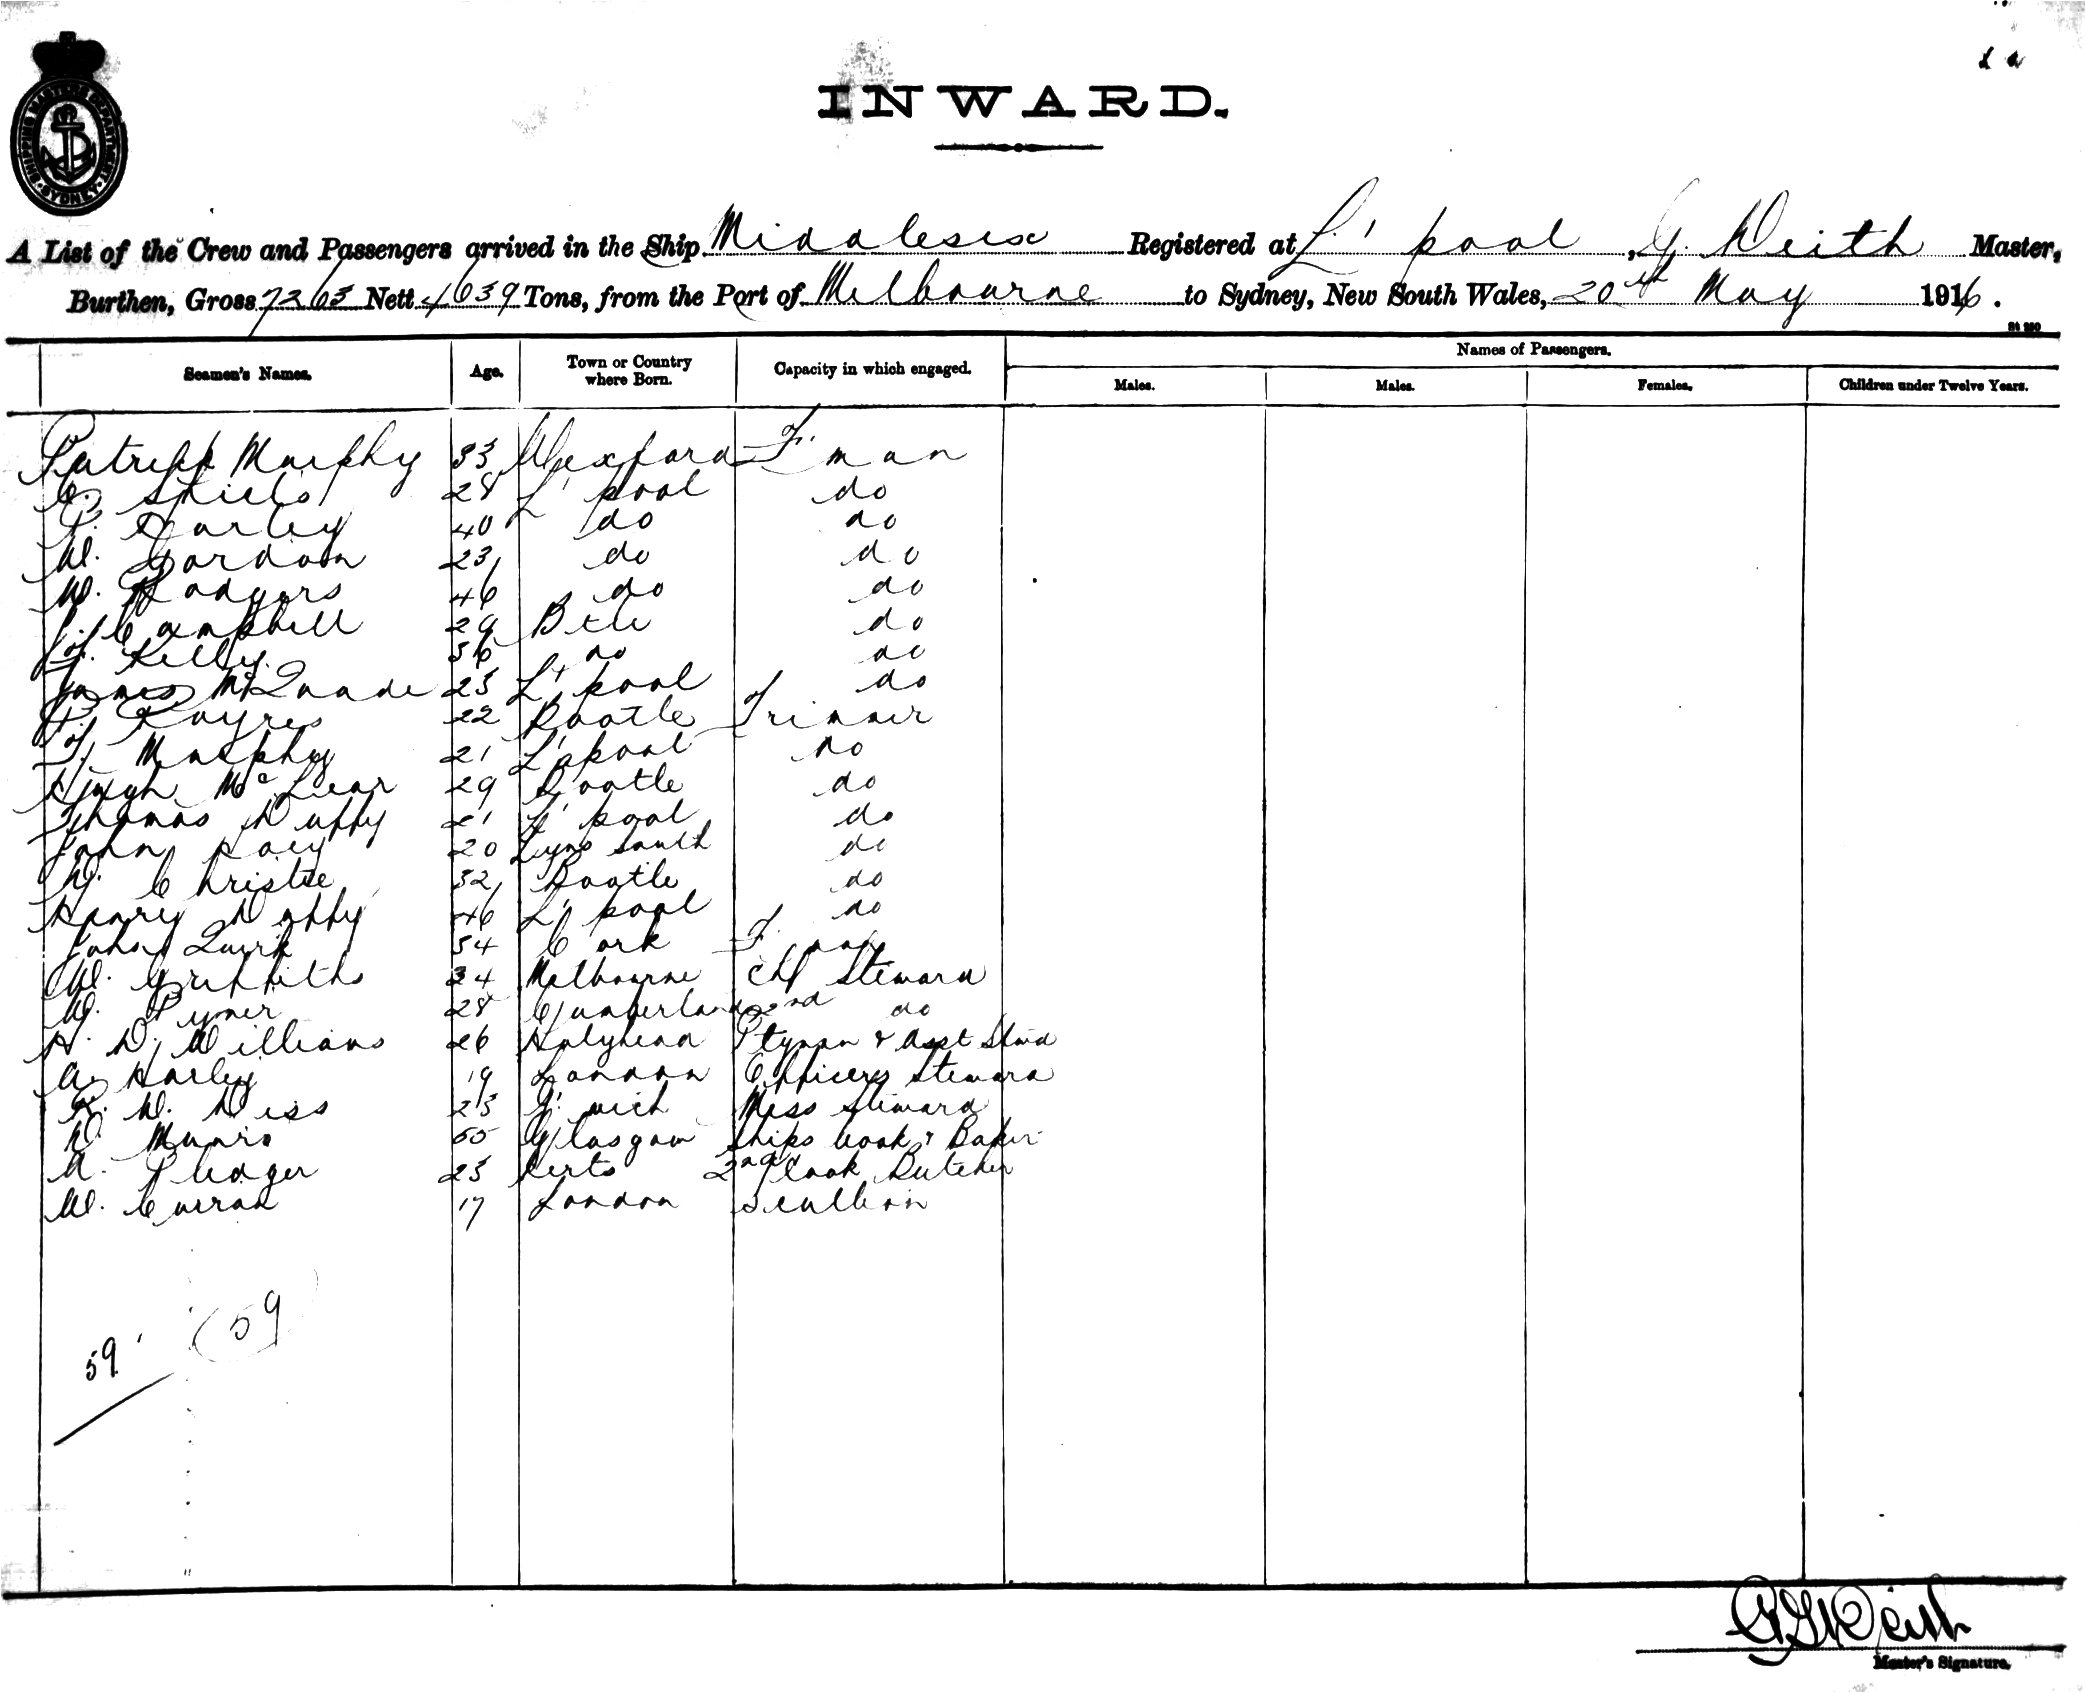 SHIPPING MASTERS DEPARTMENT SYDNEY
INWARD.
A List of the Crew and Passengers arrived in the Ship Middlesex Registered at L'pool, G. Weith Master,
Burthen, Gross 7263 Nett 4639 Tons, from the Port of Melbourne to Sydney, New South Wales, 20th May 1916.
Seamen's Names. Age. Town or Country where Born. Capacity in which engaged. Names of Passengers.
Males. Males. Females. Children under Twelve Years.
Patrick Murphy 33 Wexford F. man
C. Shiels 28 L'pool do
P. Darley 40 do do
W. Gordon 23 do do
W. Rodgers 46 do do
J. Campbell 29 Btle do
J. Kelly 36 do do
James McQuade 23 L'pool do
22 Bootle Trimmer
T. Murphy 21 L'pool do
Hugh McLear 29 Bootle do
Thomas Duffy 21 L'pool do
John 20 do
D. Christie 32 Bootle do
Henry Duffy 46 L'pool do
John Quirk 34 Cork F. man
W. Griffiths 34 Melbourne Chf Steward
W. Pymer 28 Cumberland 2nd do
H. D. Williams 26 Holyhead Ptyman & Asst Stwd
A. Harley 19 London Officers Steward
R. W. Diss 23 G'wich Mess Steward
D. Munro 55 Glasgow Ships Cook & Baker
A. Pledger 23 Herts 2nd Cook Butcher
W. Curran 17 London Scullion
59 (59)
Master's Signature.